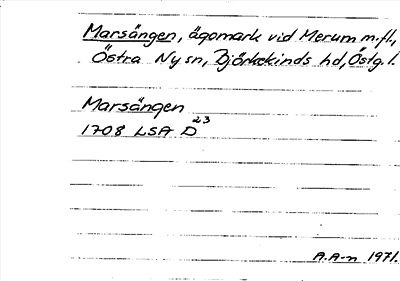 Marsängen, ägomark vid Merum m.fl.,
Östra Ny sn, Björkekinds hd, Östg.l.
Marsängen
1708 LSA D 23
A.A-n 1971.